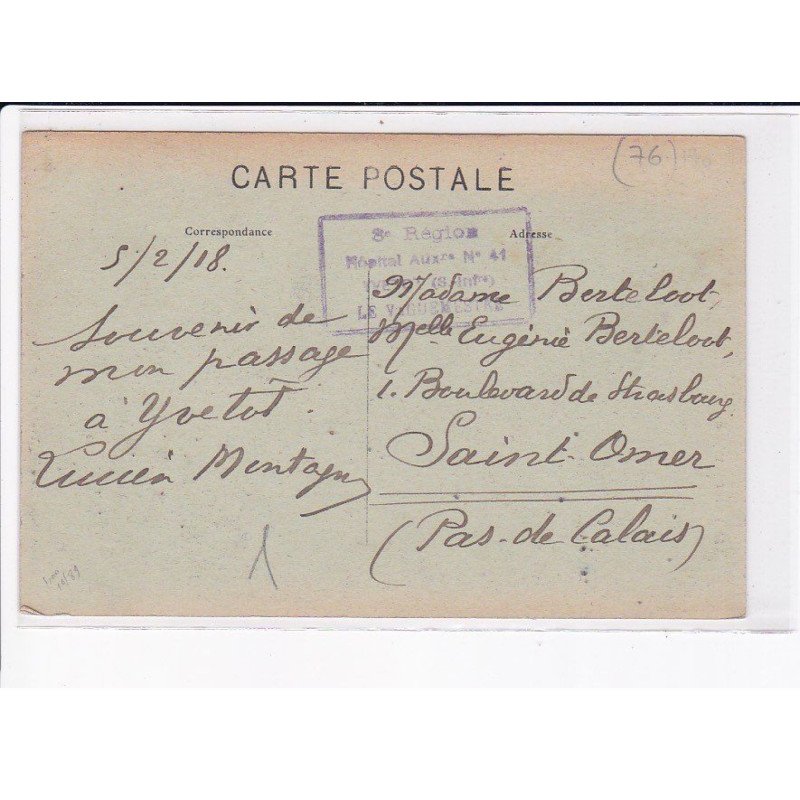 (76)
CARTE POSTALE
Correspondance
Adresse
3e Région
Hôpital Auxre N° 41
LE VAGUEMESTRE
5/2/18.
Souvenir de
mon passage
à Yvetot.
Lucien Montagu
Madame Berteloot,
Melle Eugénie Berteloot,
1. Boulevard de Strasbourg
Saint-Omer
(Pas-de-Calais)
1